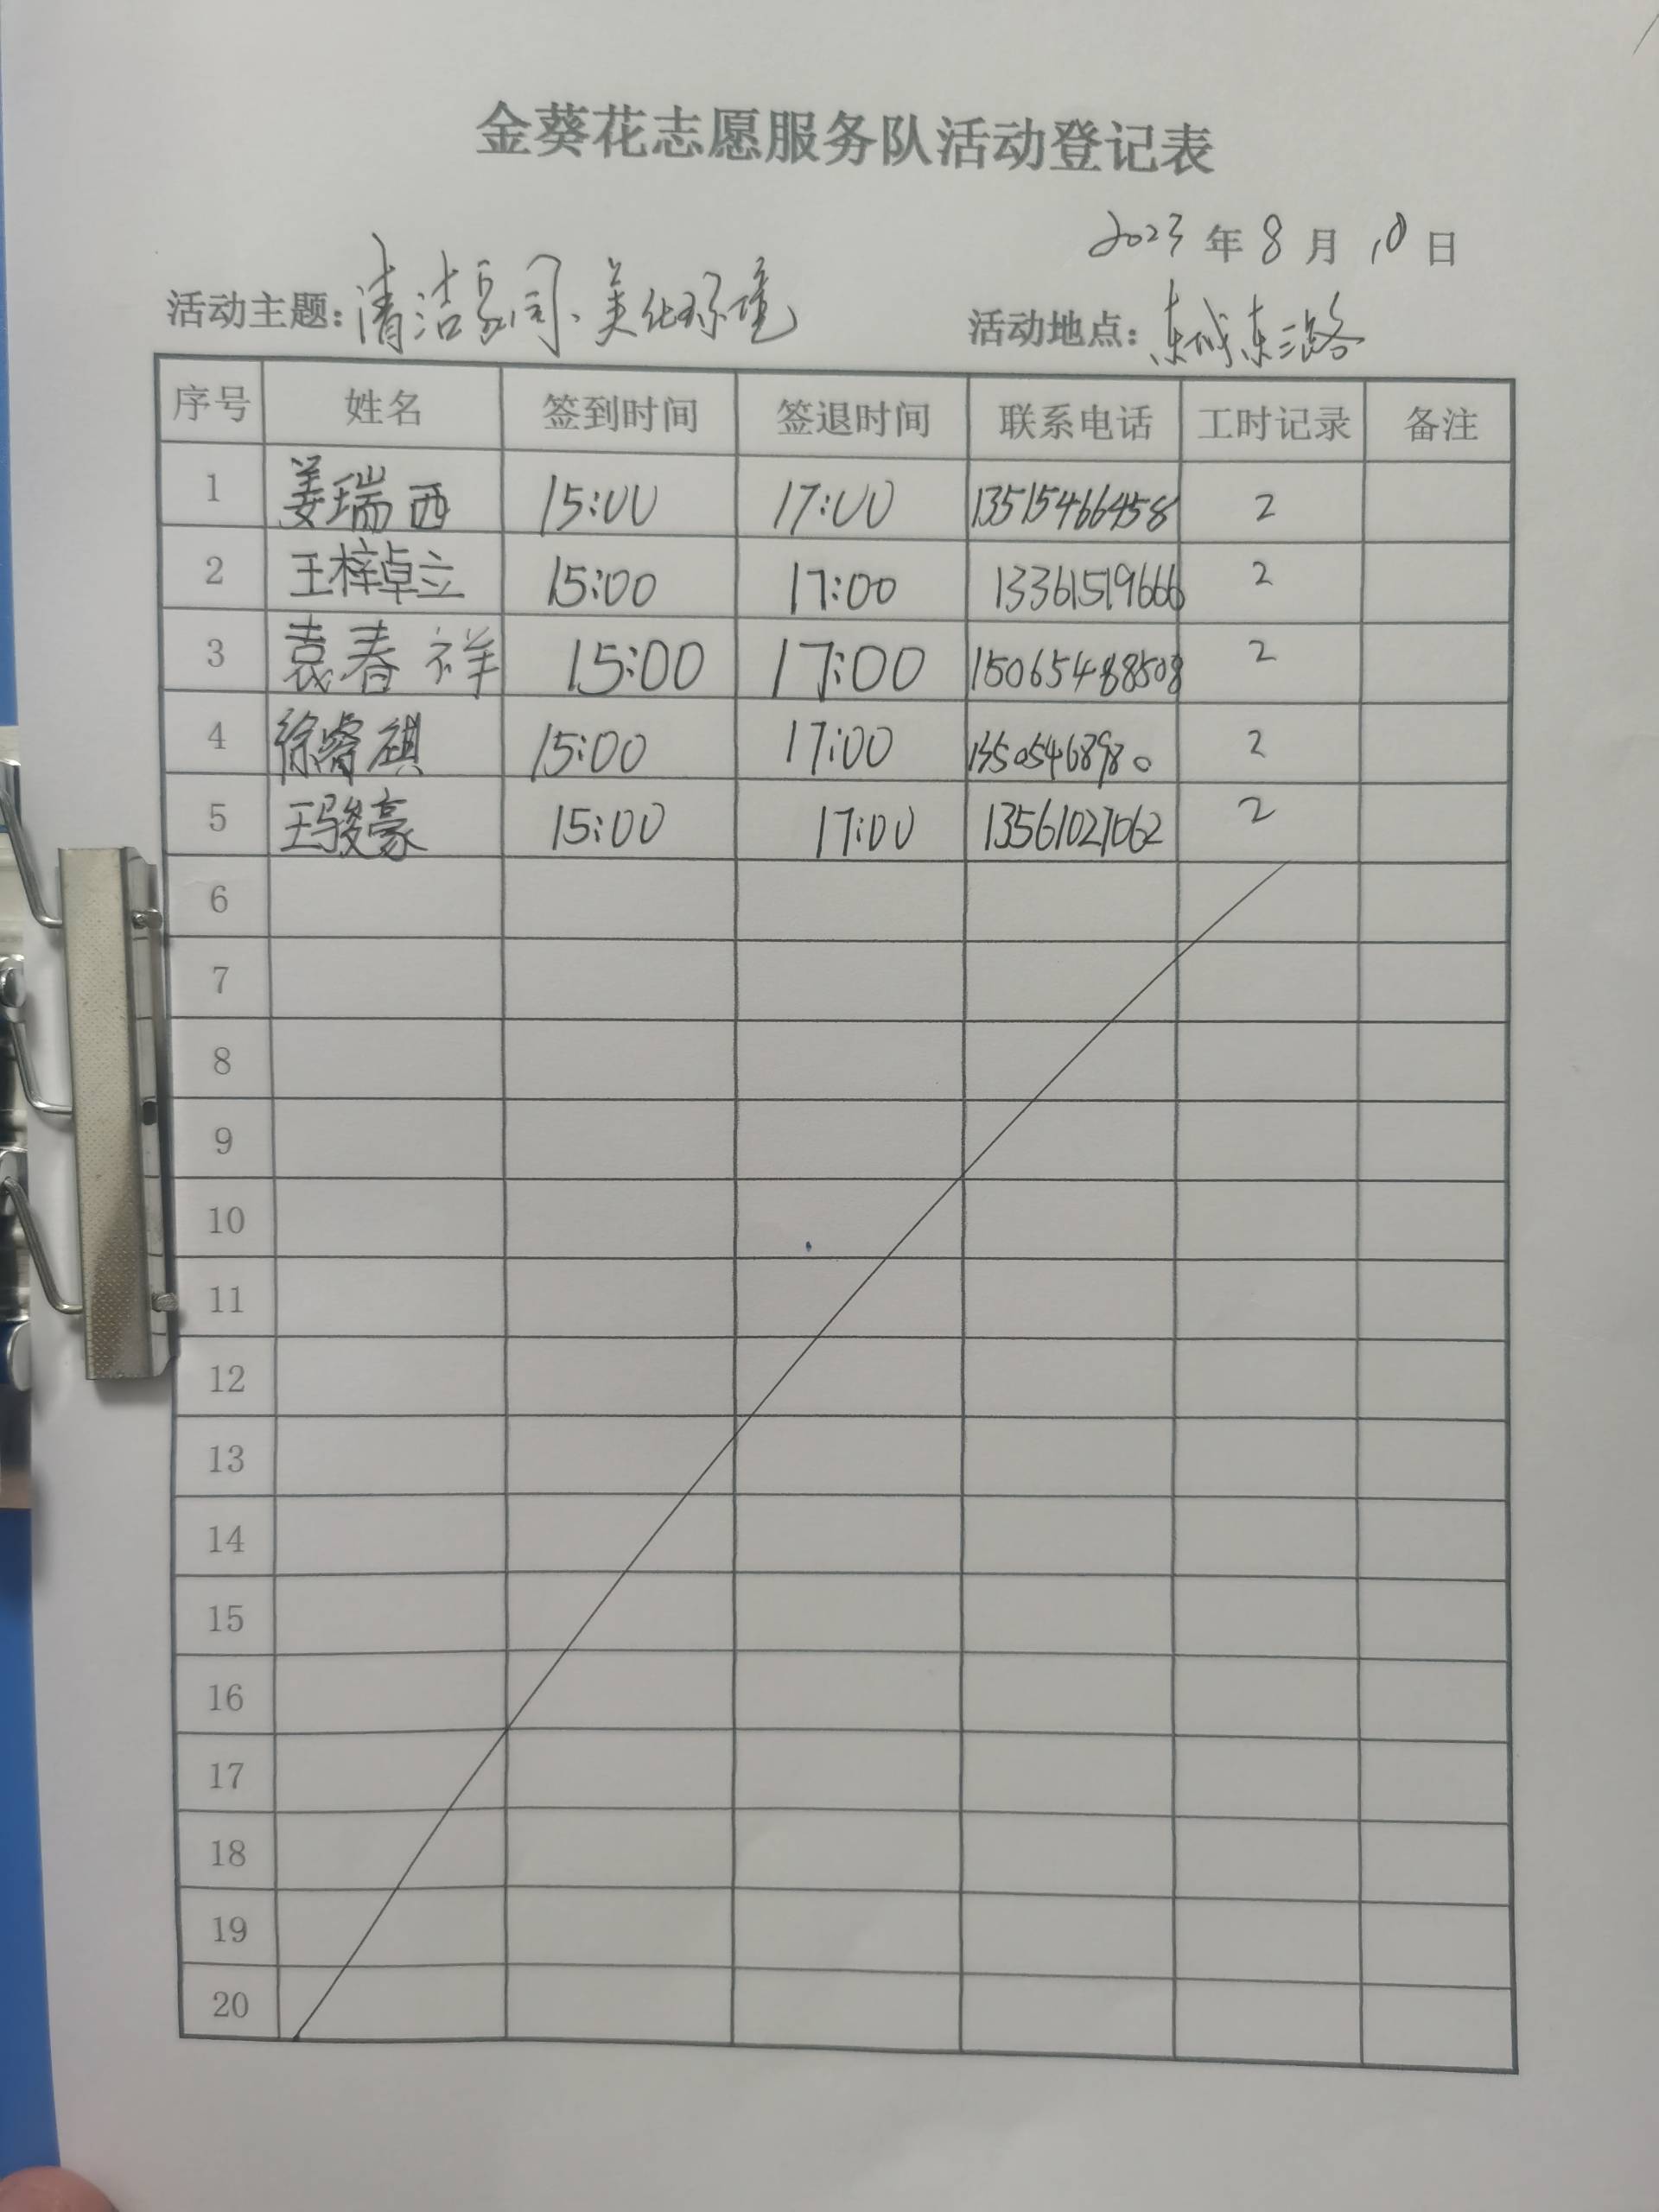 金葵花志愿服务队活动登记表
2023 年 8 月 10 日
活动主题: 清洁家园、美化环境 活动地点: 东城东三路
序号 姓名 签到时间 签退时间 联系电话 工时记录 备注
1 姜瑞西 15:00 17:00 13515466458 2
2 王梓卓立 15:00 17:00 13361519666 2
3 袁春祥 15:00 17:00 15065488508 2
4 徐睿祺 15:00 17:00 2
5 王骏豪 15:00 17:00 13561027062 2
6
7
8
9
10
11
12
13
14
15
16
17
18
19
20